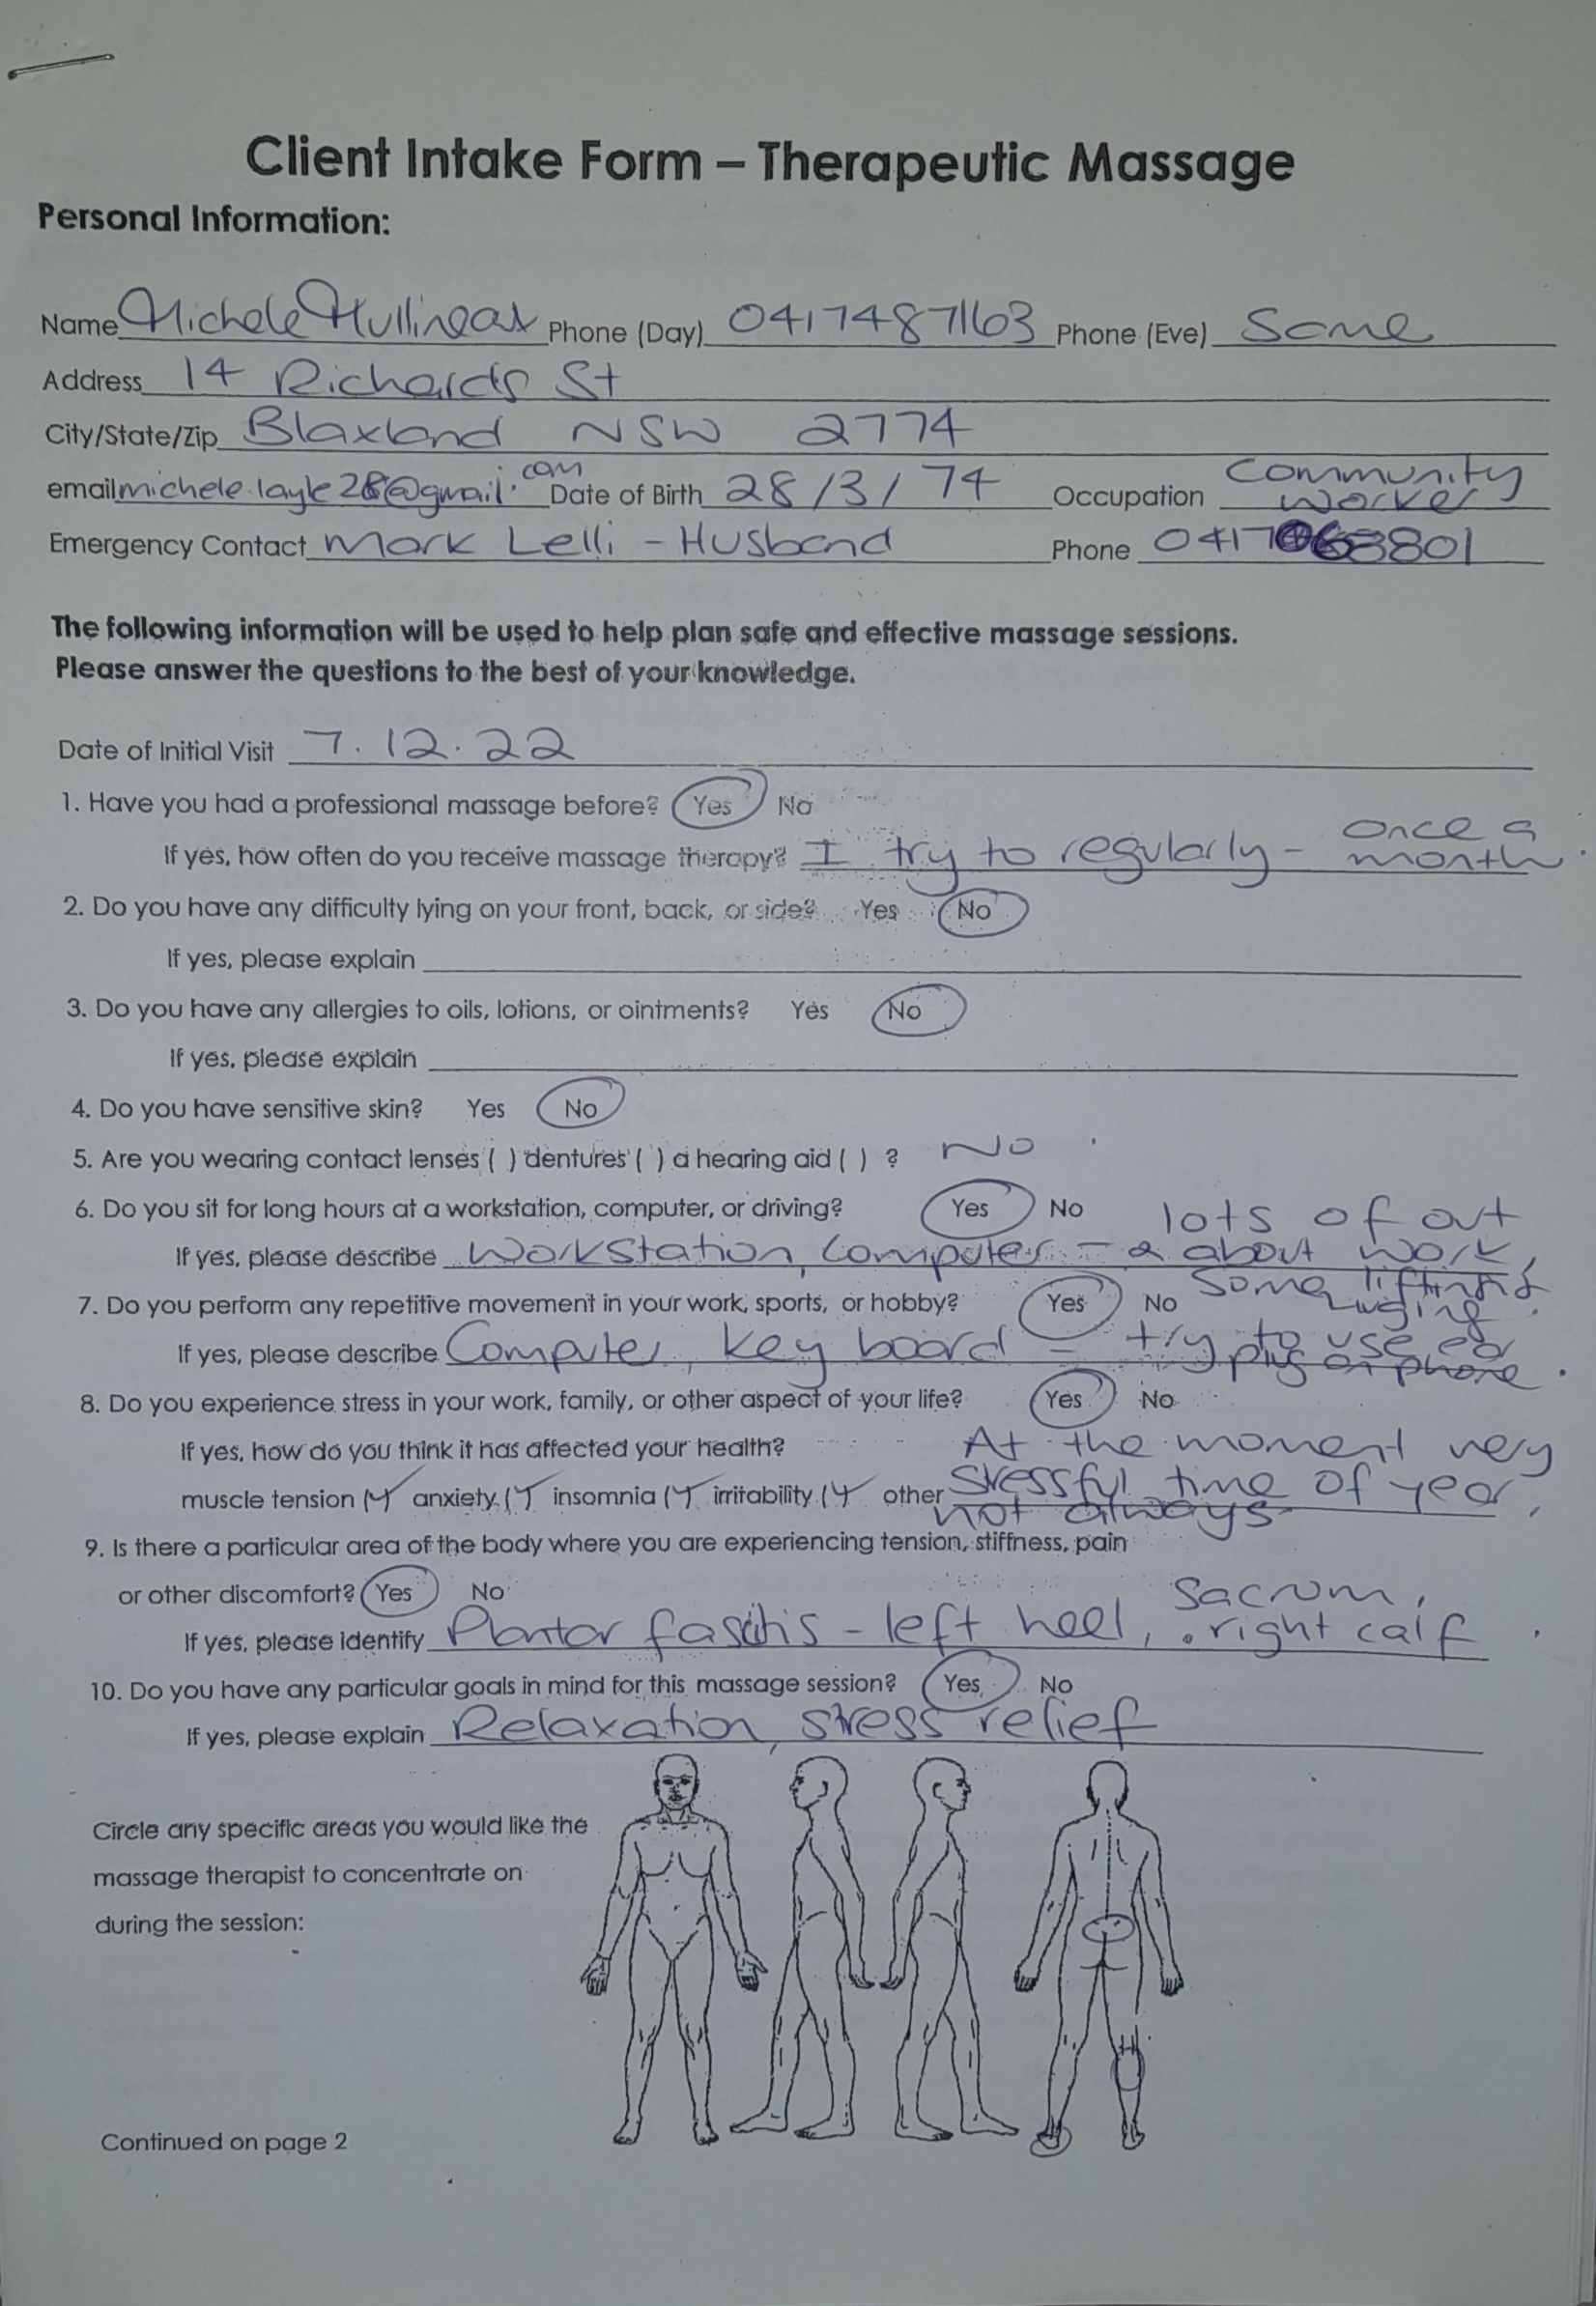 Client Intake Form – Therapeutic Massage
Personal Information:
Name Michele Mullineax Phone (Day) 0417487163 Phone (Eve) Same
Address 14 Richards St
City/State/Zip Blaxland NSW 2774
email michele.layle28@gmail.com Date of Birth 28/3/74 Occupation Community worker
Emergency Contact Mark Lelli - Husband Phone
The following information will be used to help plan safe and effective massage sessions.
Please answer the questions to the best of your knowledge.
Date of Initial Visit 7.12.22
1. Have you had a professional massage before? Yes No
If yes, how often do you receive massage therapy? I try to regularly - once a month.
2. Do you have any difficulty lying on your front, back, or side? Yes No
If yes, please explain
3. Do you have any allergies to oils, lotions, or ointments? Yes No
If yes, please explain
4. Do you have sensitive skin? Yes No
5. Are you wearing contact lenses ( ) dentures ( ) a hearing aid ( ) ? No
6. Do you sit for long hours at a workstation, computer, or driving? Yes No
If yes, please describe Workstation, computer - lots of out & about work, some lifting &
7. Do you perform any repetitive movement in your work, sports, or hobby? Yes No
If yes, please describe Computer, key board - try to use ear plug on phone.
8. Do you experience stress in your work, family, or other aspect of your life? Yes No
If yes, how do you think it has affected your health?
muscle tension (✓) anxiety (✓) insomnia (✓) irritability (✓) other At the moment very stressful time of year, not always
9. Is there a particular area of the body where you are experiencing tension, stiffness, pain
or other discomfort? Yes No
If yes, please identify Plantar fasciitis - left heel, sacrum, right calf.
10. Do you have any particular goals in mind for this massage session? Yes No
If yes, please explain Relaxation, stress relief
Circle any specific areas you would like the
massage therapist to concentrate on
during the session:
Continued on page 2